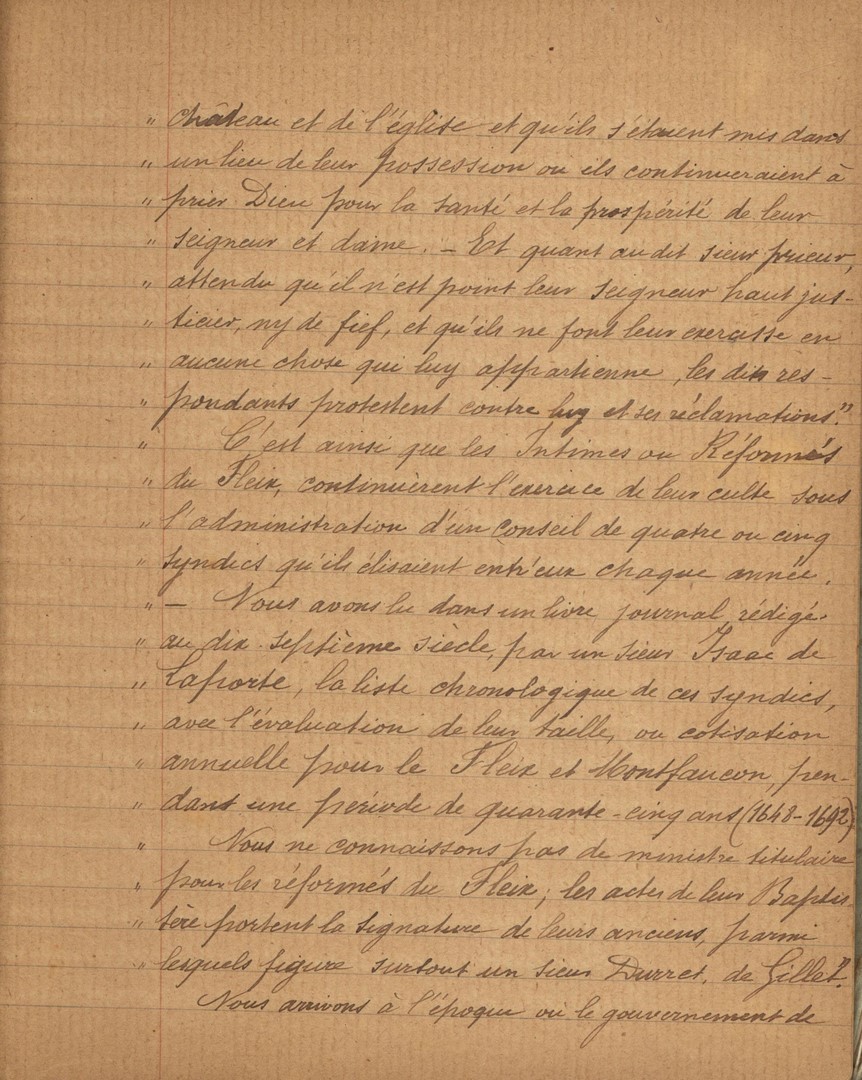 " château et de l'église et qu'ils s'étaient mis dans
" un lieu de leur possession ou ils continueraient à
" prier Dieu pour la santé et la prospérité de leur
" seigneur et dame. – Et quant au dit sieur prieur,
" attendu qu'il n'est point leur seigneur haut jus-
" ticier, ny de fief, et qu'ils ne font leur exercisse en
" aucune chose qui luy appartienne, les dits res-
" pondants protestent contre luy et ses réclamations."
" C'est ainsi que les Intimes ou Réformés
" du Fleix, continuèrent l'exercice de leur culte sous
" l'administration d'un conseil de quatre ou cinq
" syndics qu'ils élisaient entr'eux chaque année.
" – Nous avons lu dans un livre journal, rédigé
" au dix-septième siècle, par un sieur Isaac de
" Laporte, la liste chronologique de ces syndics,
" avec l'évaluation de leur taille, ou cotisation
" annuelle pour le Fleix et Montfaucon, pen-
" dant une période de quarante-cinq ans (1648-1692)
" Nous ne connaissons pas de ministre titulaire
" pour les réformés du Fleix; les actes de leur Baptis-
" tère portent la signature de leurs anciens, parmi
" lesquels figure surtout un sieur Durret, de Gillet."
Nous arrivons à l'époque où le gouvernement de